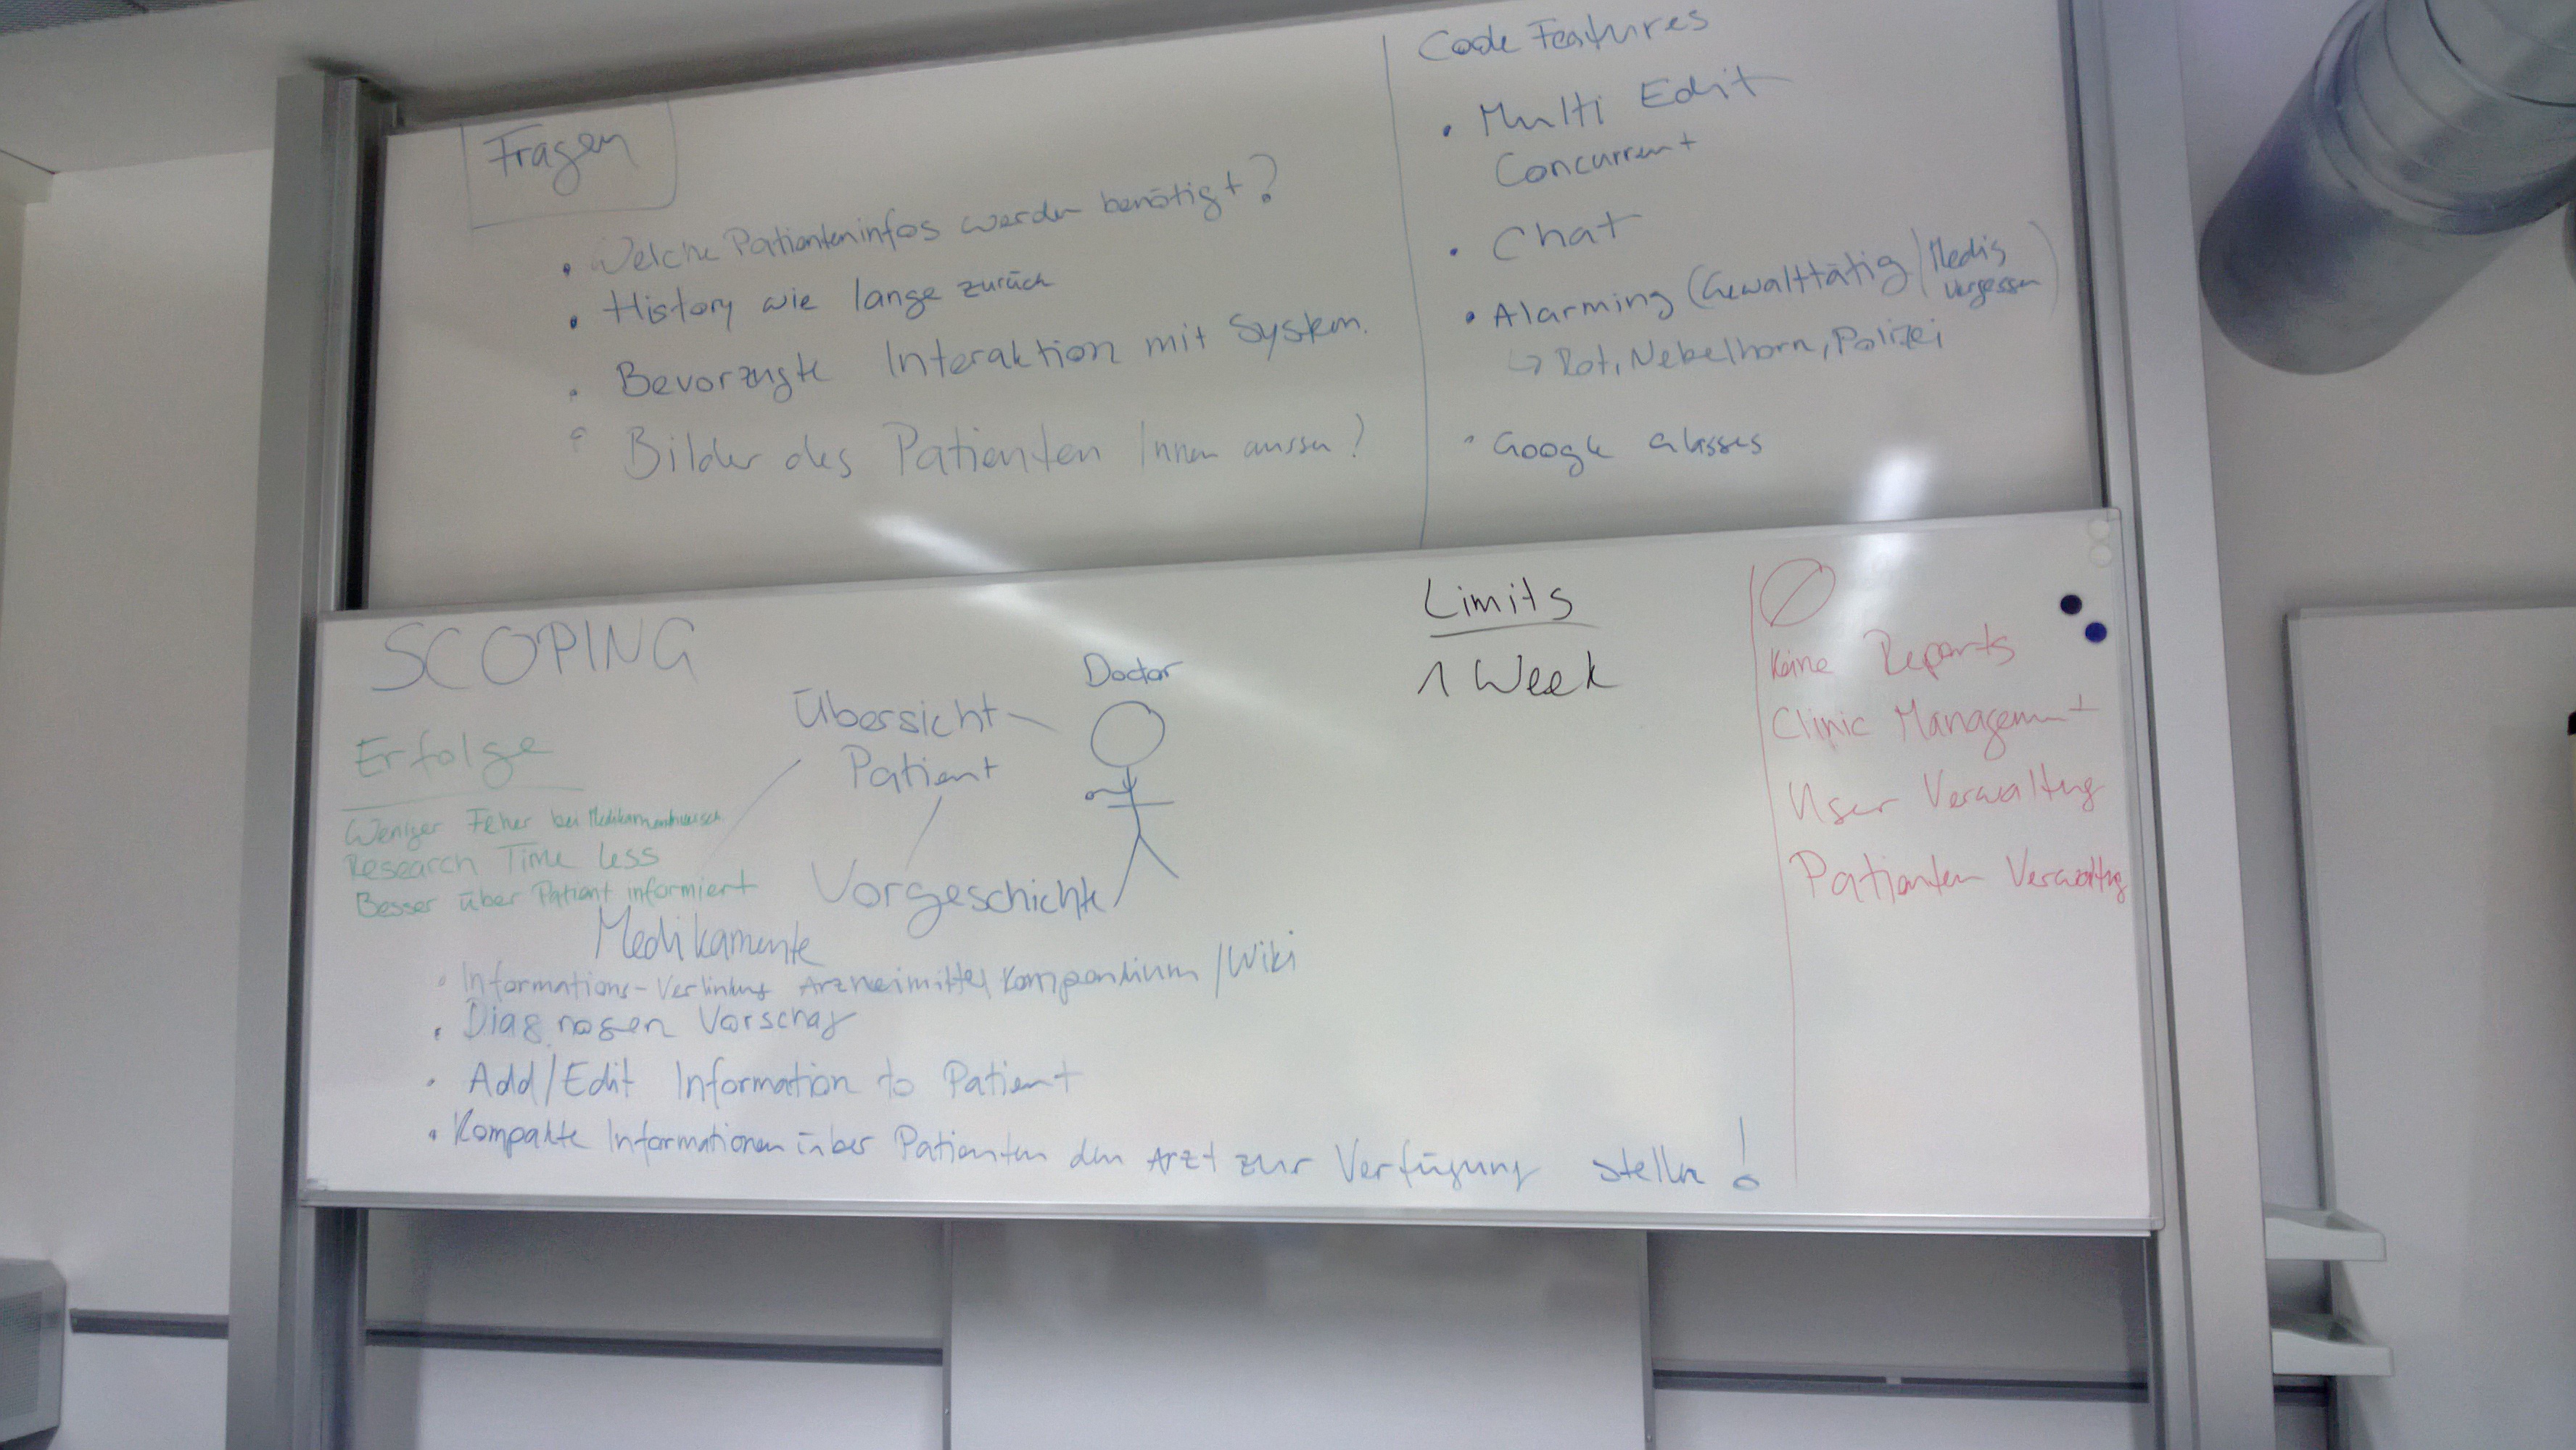 Fragen
• Welche Patienteninfos werden benötigt?
• History wie lange zurück
• Bevorzugte Interaktion mit System.
• Bilder des Patienten Innen aussen?
Code Features
• Multi Edit
Concurrent
• Chat
• Alarming (Gewalttätig/Medis
vergessen)
↳ Rot, Nebelhorn, Polizei
• Google Glasses
SCOPING
Erfolge
Weniger Feher bei
Research Time less
Besser über Patient informiert
Doctor
Übersicht
Patient
Vorgeschichte
Medikamente
• Informations-Verlinkung Arzneimittel Kompendium/Wiki
• Diagnosen Vorschag
• Add/Edit Information to Patient
• Kompakte Informationen über Patienten den Arzt zur Verfügung stellen!
Limits
1 Week
Keine Reports
Clinic Management
User Verwaltung
Patienten Verwaltung